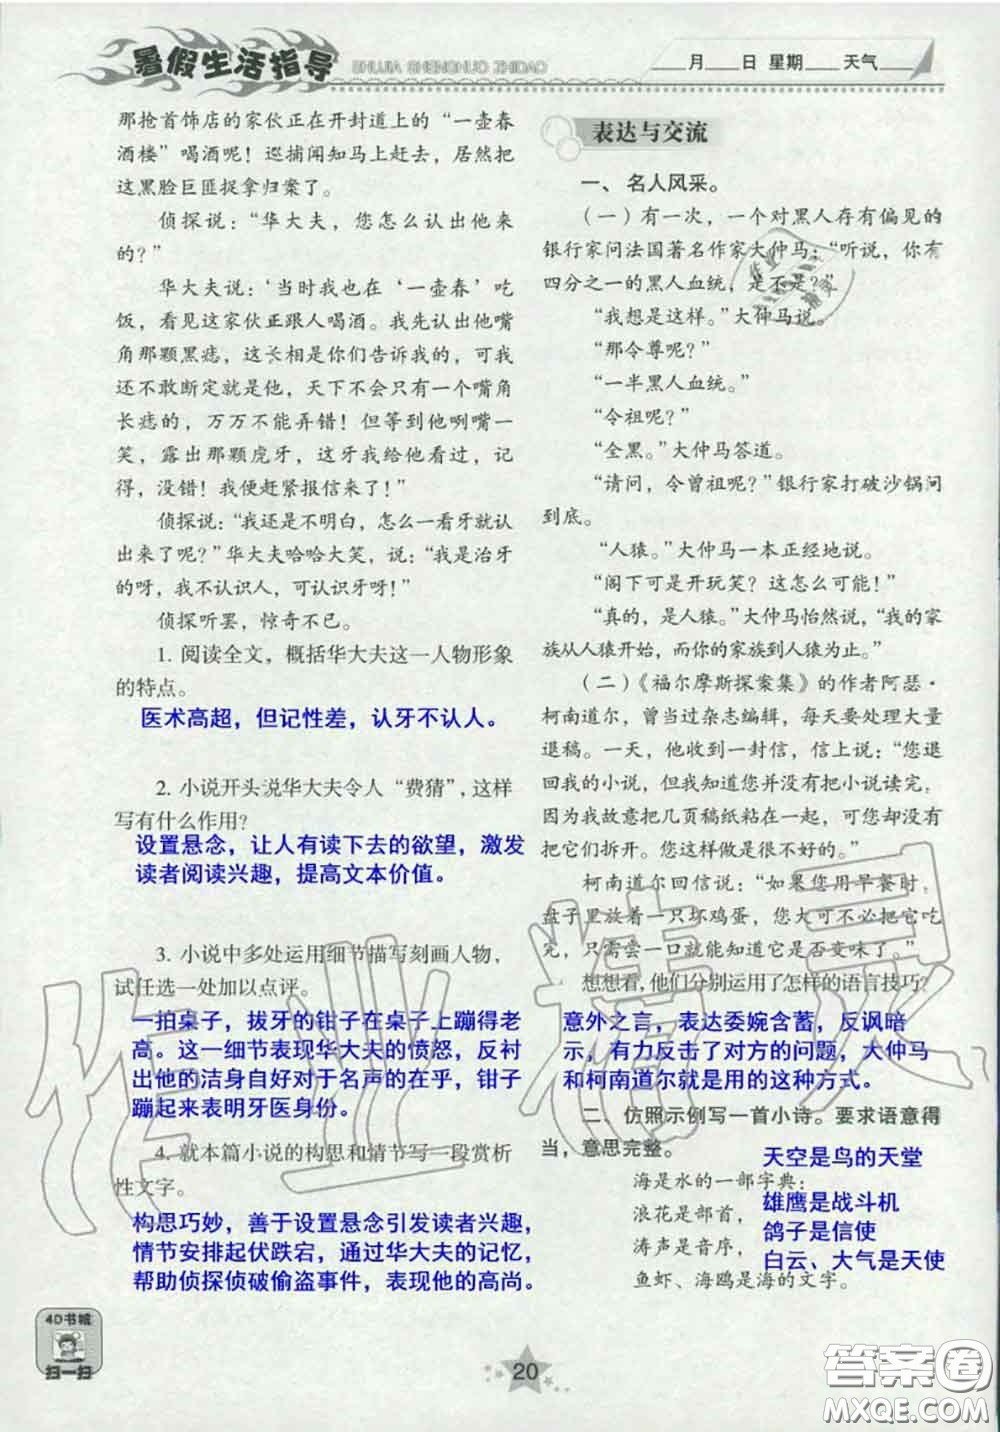 暑假生活指导
SHUJIA SHENGHUO ZHIDAO
月 日 星期 天气
那抢首饰店的家伙正在开封道上的“一壶春
酒楼”喝酒呢！巡捕闻知马上赶去，居然把
这黑脸巨匪捉拿归案了。
侦探说：“华大夫，您怎么认出他来
的？”
华大夫说：‘当时我也在‘一壶春’吃
饭，看见这家伙正跟人喝酒。我先认出他嘴
角那颗黑痣，这长相是你们告诉我的，可我
还不敢断定就是他，天下不会只有一个嘴角
长痣的，万万不能弄错！但等到他咧嘴一
笑，露出那颗虎牙，这牙我给他看过，记
得，没错！我便赶紧报信来了！”
侦探说：“我还是不明白，怎么一看牙就认
出来了呢？”华大夫哈哈大笑，说：“我是治牙
的呀，我不认识人，可认识牙呀！”
侦探听罢，惊奇不已。
1. 阅读全文，概括华大夫这一人物形象
的特点。
医术高超，但记性差，认牙不认人。
2. 小说开头说华大夫令人“费猜”，这样
写有什么作用？
设置悬念，让人有读下去的欲望，激发
读者阅读兴趣，提高文本价值。
3. 小说中多处运用细节描写刻画人物，
试任选一处加以点评。
一拍桌子，拔牙的钳子在桌子上蹦得老
高。这一细节表现华大夫的愤怒，反衬
出他的洁身自好对于名声的在乎，钳子
蹦起来表明牙医身份。
4. 就本篇小说的构思和情节写一段赏析
性文字。
构思巧妙，善于设置悬念引发读者兴趣，
情节安排起伏跌宕，通过华大夫的记忆，
帮助侦探侦破偷盗事件，表现他的高尚。
表达与交流
一、名人风采。
（一）有一次，一个对黑人存有偏见的
银行家问法国著名作家大仲马：“听说，你有
四分之一的黑人血统，是不是？”
“我想是这样。”大仲马说。
“那令尊呢？”
“一半黑人血统。”
“令祖呢？”
“全黑。”大仲马答道。
“请问，令曾祖呢？”银行家打破沙锅问
到底。
“人猿。”大仲马一本正经地说。
“阁下可是开玩笑？这怎么可能！”
“真的，是人猿。”大仲马怡然说，“我的家
族从人猿开始，而你的家族到人猿为止。”
（二）《福尔摩斯探案集》的作者阿瑟·
柯南道尔，曾当过杂志编辑，每天要处理大量
退稿。一天，他收到一封信，信上说：“您退
回我的小说，但我知道您并没有把小说读完，
因为我故意把几页稿纸粘在一起，可您却没有
把它们拆开。您这样做是很不好的。”
柯南道尔回信说：“如果您用早餐时，
盘子里放着一只坏鸡蛋，您大可不必把它吃
完，只需尝一口就能知道它是否变味了。”
想想看，他们分别运用了怎样的语言技巧？
意外之言，表达委婉含蓄，反讽暗
示，有力反击了对方的问题，大仲马
和柯南道尔就是用的这种方式。
二、仿照示例写一首小诗。要求语意得
当，意思完整。
海是水的一部字典：
浪花是部首，
涛声是音序，
鱼虾、海鸥是海的文字。
天空是鸟的天堂
雄鹰是战斗机
鸽子是信使
白云、大气是天使
作业精灵
作业精灵
4D书城
扫一扫
20
答案圈
MXQE.COM